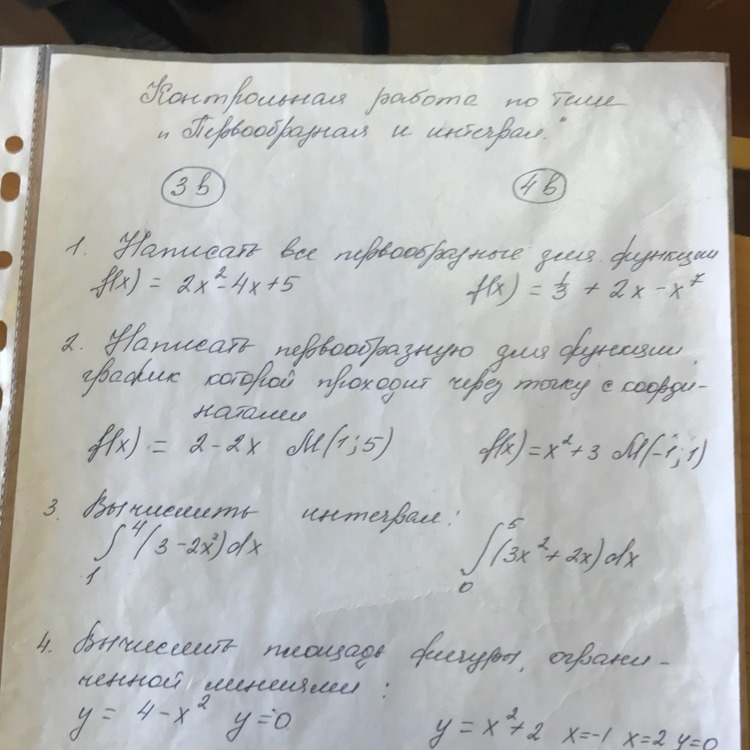 Контрольная работа по теме
"Первообразная и интеграл."
3 в 4 в
1. Написать все первообразные для функции
f(x) = 2x² - 4x + 5 f(x) = 1/3 + 2x - x⁷
2. Написать первообразную для функции,
график которой проходит через точку с коорди-
натами
f(x) = 2 - 2x M(1; 5) f(x) = x² + 3 M(-1; 1)
3. Вычислить интеграл:
∫₁⁴ (3 - 2x²) dx ∫₀⁵ (3x² + 2x) dx
4. Вычислить площадь фигуры, ограни-
ченной линиями:
y = 4 - x² y = 0 y = x² + 2 x = -1 x = 2 y = 0